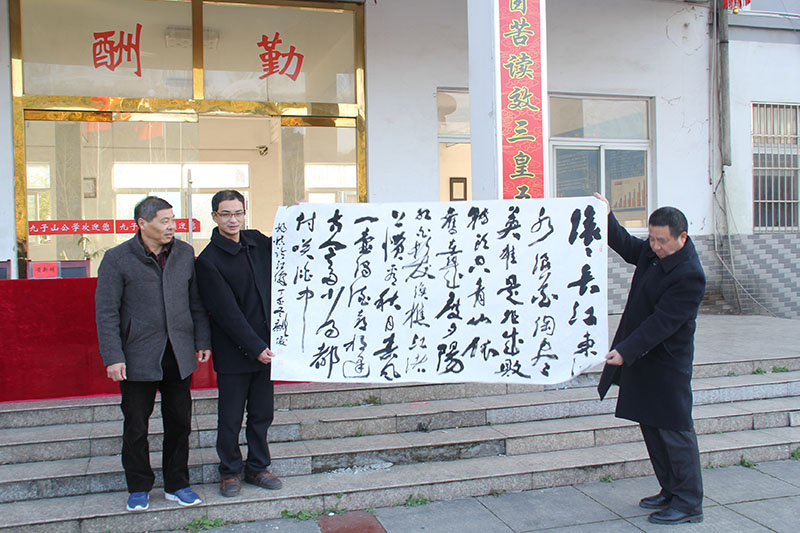 酬
勤
苦读效三皇
九子山公学欢迎您
九子山公学欢迎您
滚々长江東
水浪花淘尽
英雄是非成败
转头空青山依
旧在几度夕阳
红白发渔樵江渚
上惯看秋月春风
一壶浊酒喜相逢
古今多少事都
付笑谈中